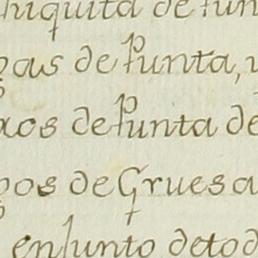 hiquita de Pun
pas de Punta,
de Punta de
pos de Gruesa
enJunto detod